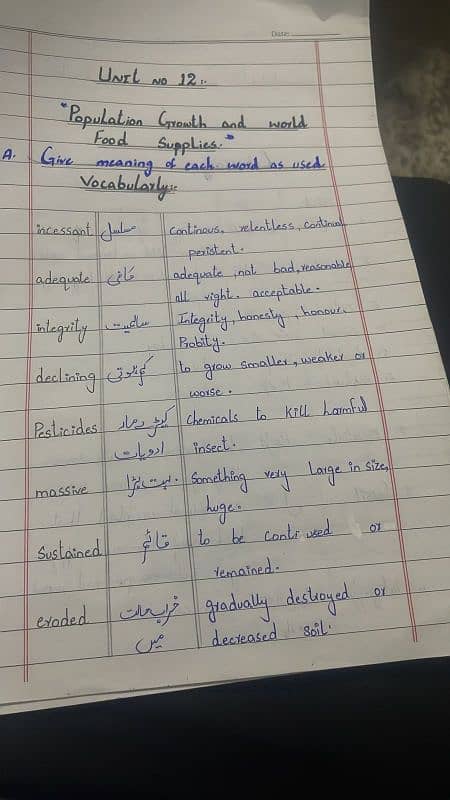 Date:
UNIt no 12:.
"Population Growth and world
Food Supplies."
A. Give meaning of each word as used
Vocabularly:.
incessant مسلسل Continous, relentless, continual
peristent.
adequate کافی adequate, not bad, reasonable
all right. acceptable.
integrity Integrity, honesty, honour,
Probity.
declining to grow smaller, weaker or
worse.
Pesticides کیڑے مار Chemicals to kill harmful
ادویات insect.
massive بہت بڑا. Something very large in size,
huge.
Sustained قائم to be continued or
remained.
eroded خراب حالت gradually destroyed or
میں decreased soil.